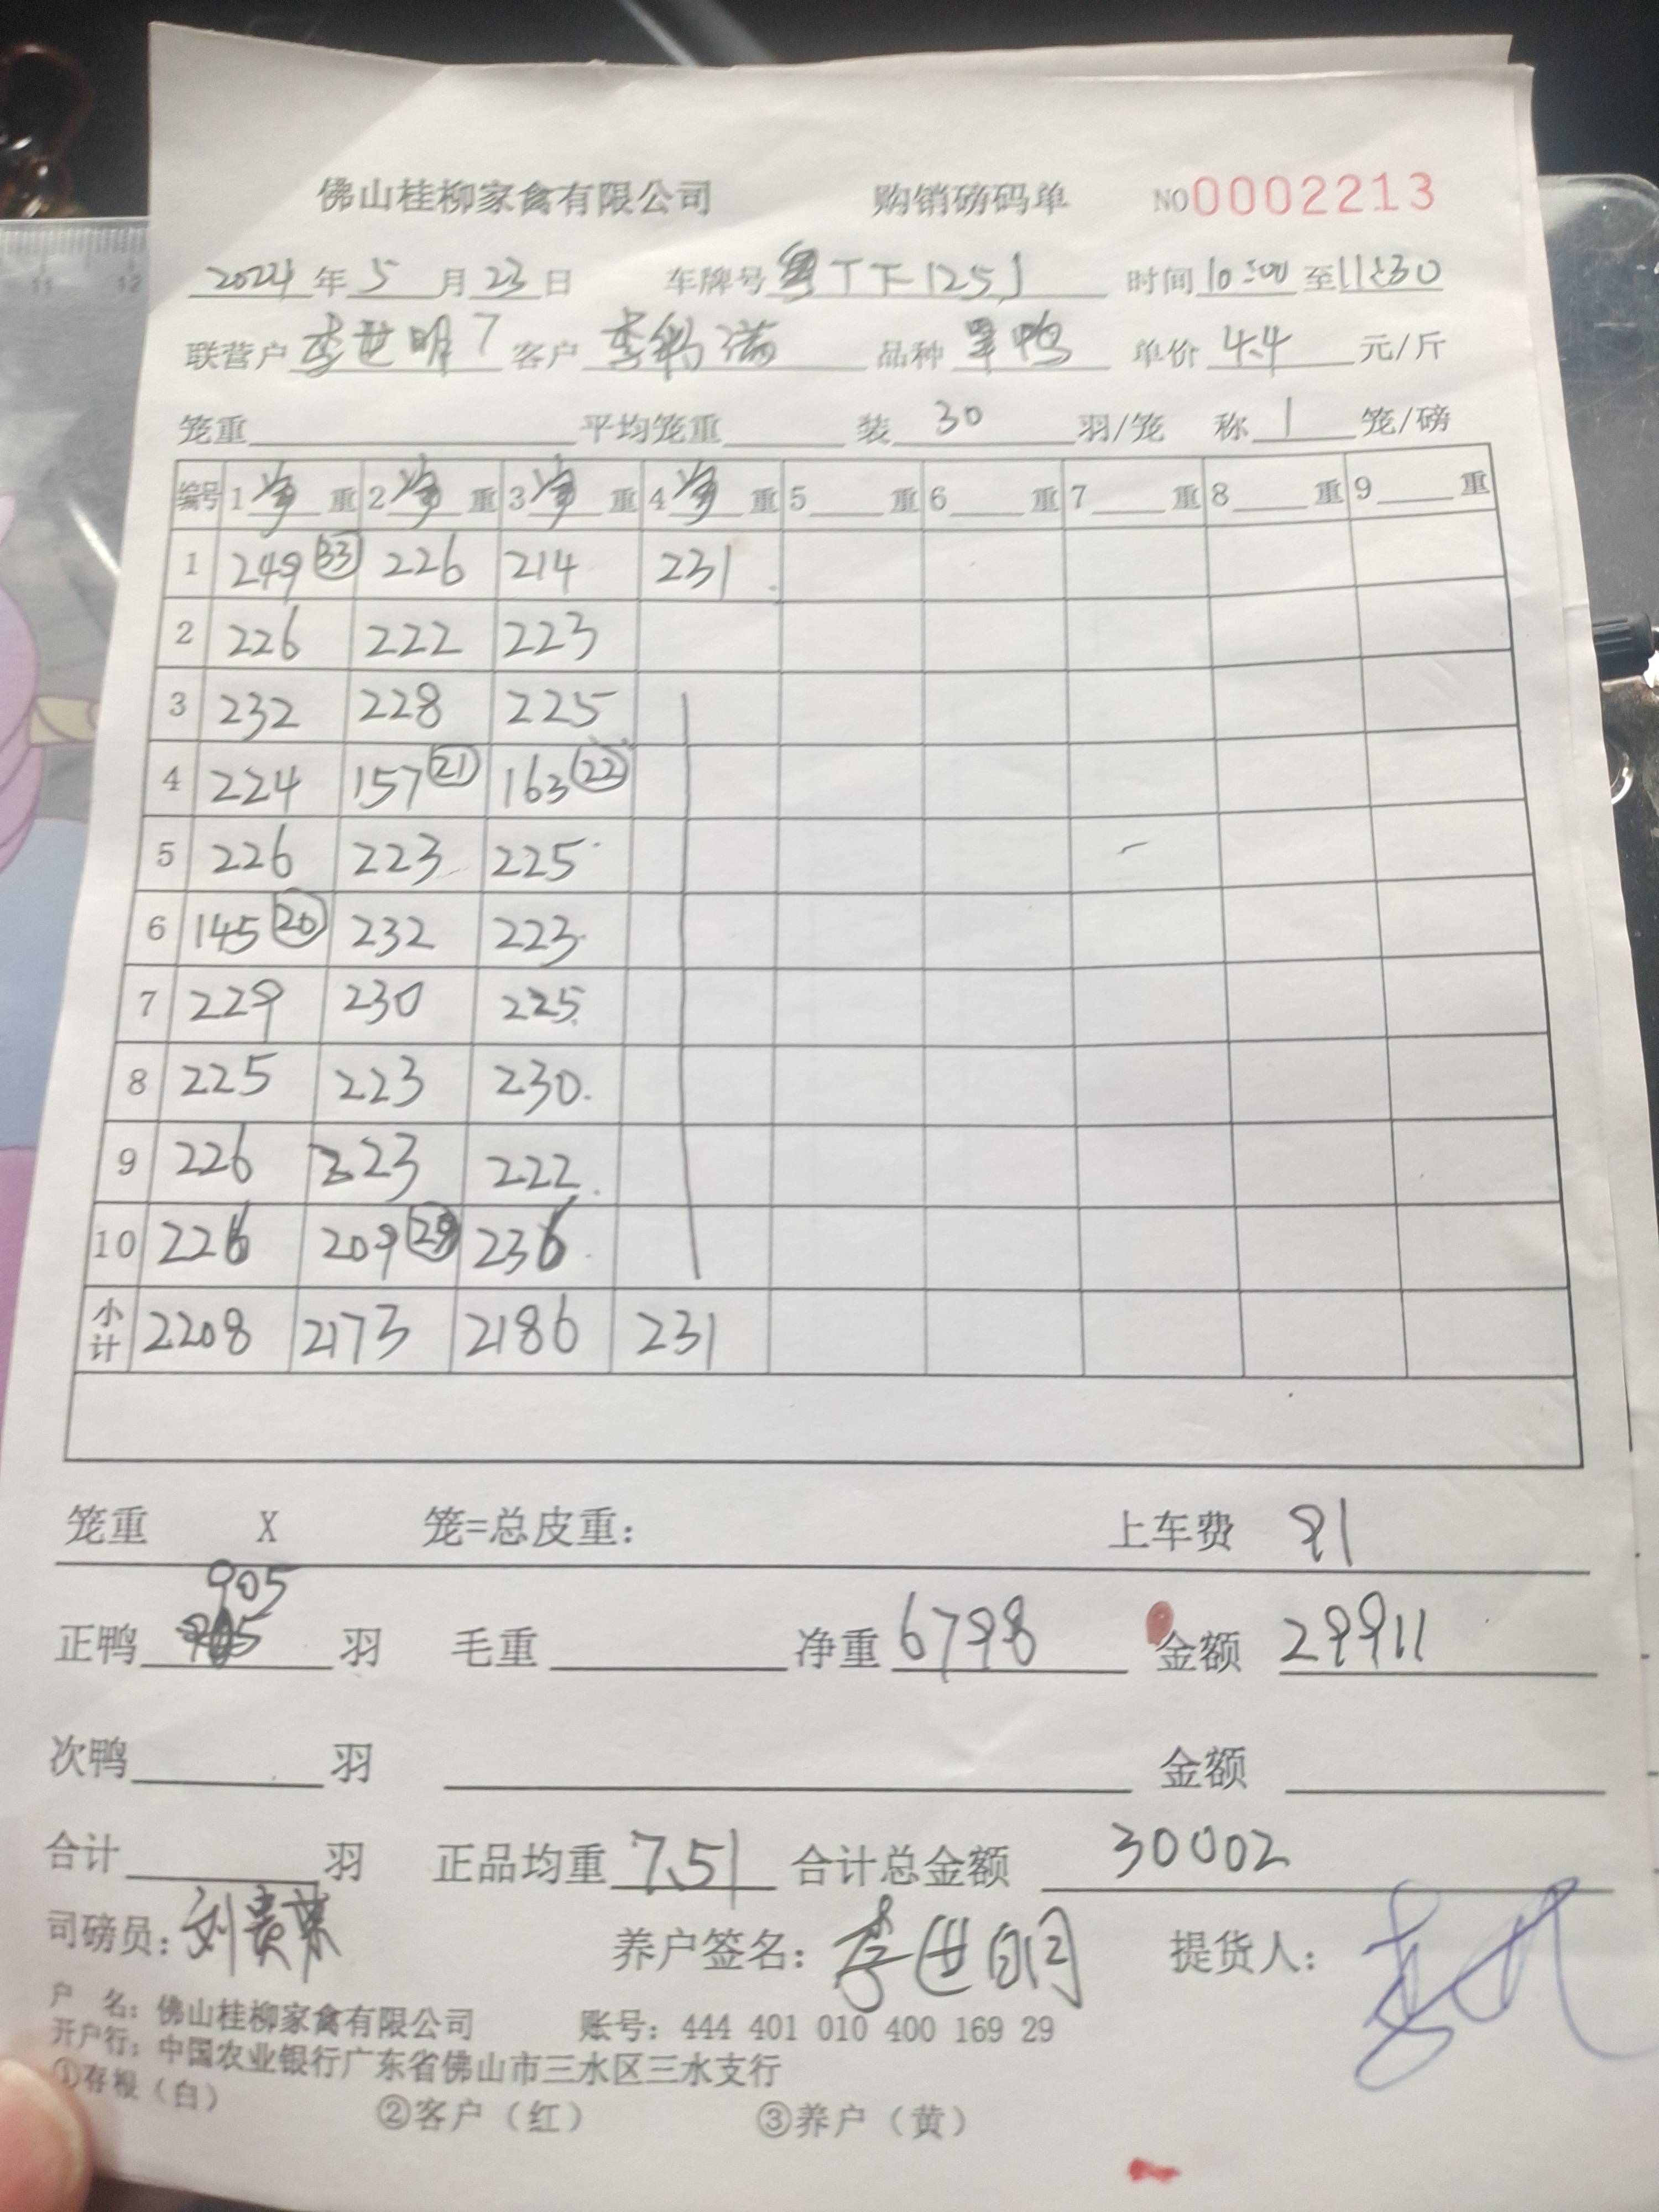 佛山桂柳家禽有限公司 购销磅码单 NO0002213
2024年5月23日 车牌号 粤T下125J 时间10:00至11:30
联营户李世明7 客户李 满 品种 鸭 单价4.4元/斤
笼重 平均笼重 装30羽/笼 称1笼/磅
编号 1净重 2净重 3净重 4净重 5重 6重 7重 8重 9重
1 249 33 226 214 231
2 226 222 223
3 232 228 225
4 224 157 21 163 22
5 226 223 225
6 145 20 232 223
7 229 230 225
8 225 223 230
9 226 223 222
10 226 209 29 236
小计 2208 2173 2186 231
笼重 X 笼=总皮重: 上车费 91
905
正鸭 羽 毛重 净重6798 金额29911
次鸭 羽 金额
合计 羽 正品均重7.51 合计总金额 30002
司磅员:刘贵 养户签名:李世明 提货人:
户 名:佛山桂柳家禽有限公司 账号:444 401 010 400 169 29
开户行:中国农业银行广东省佛山市三水区三水支行
①存根(白) ②客户(红) ③养户(黄)